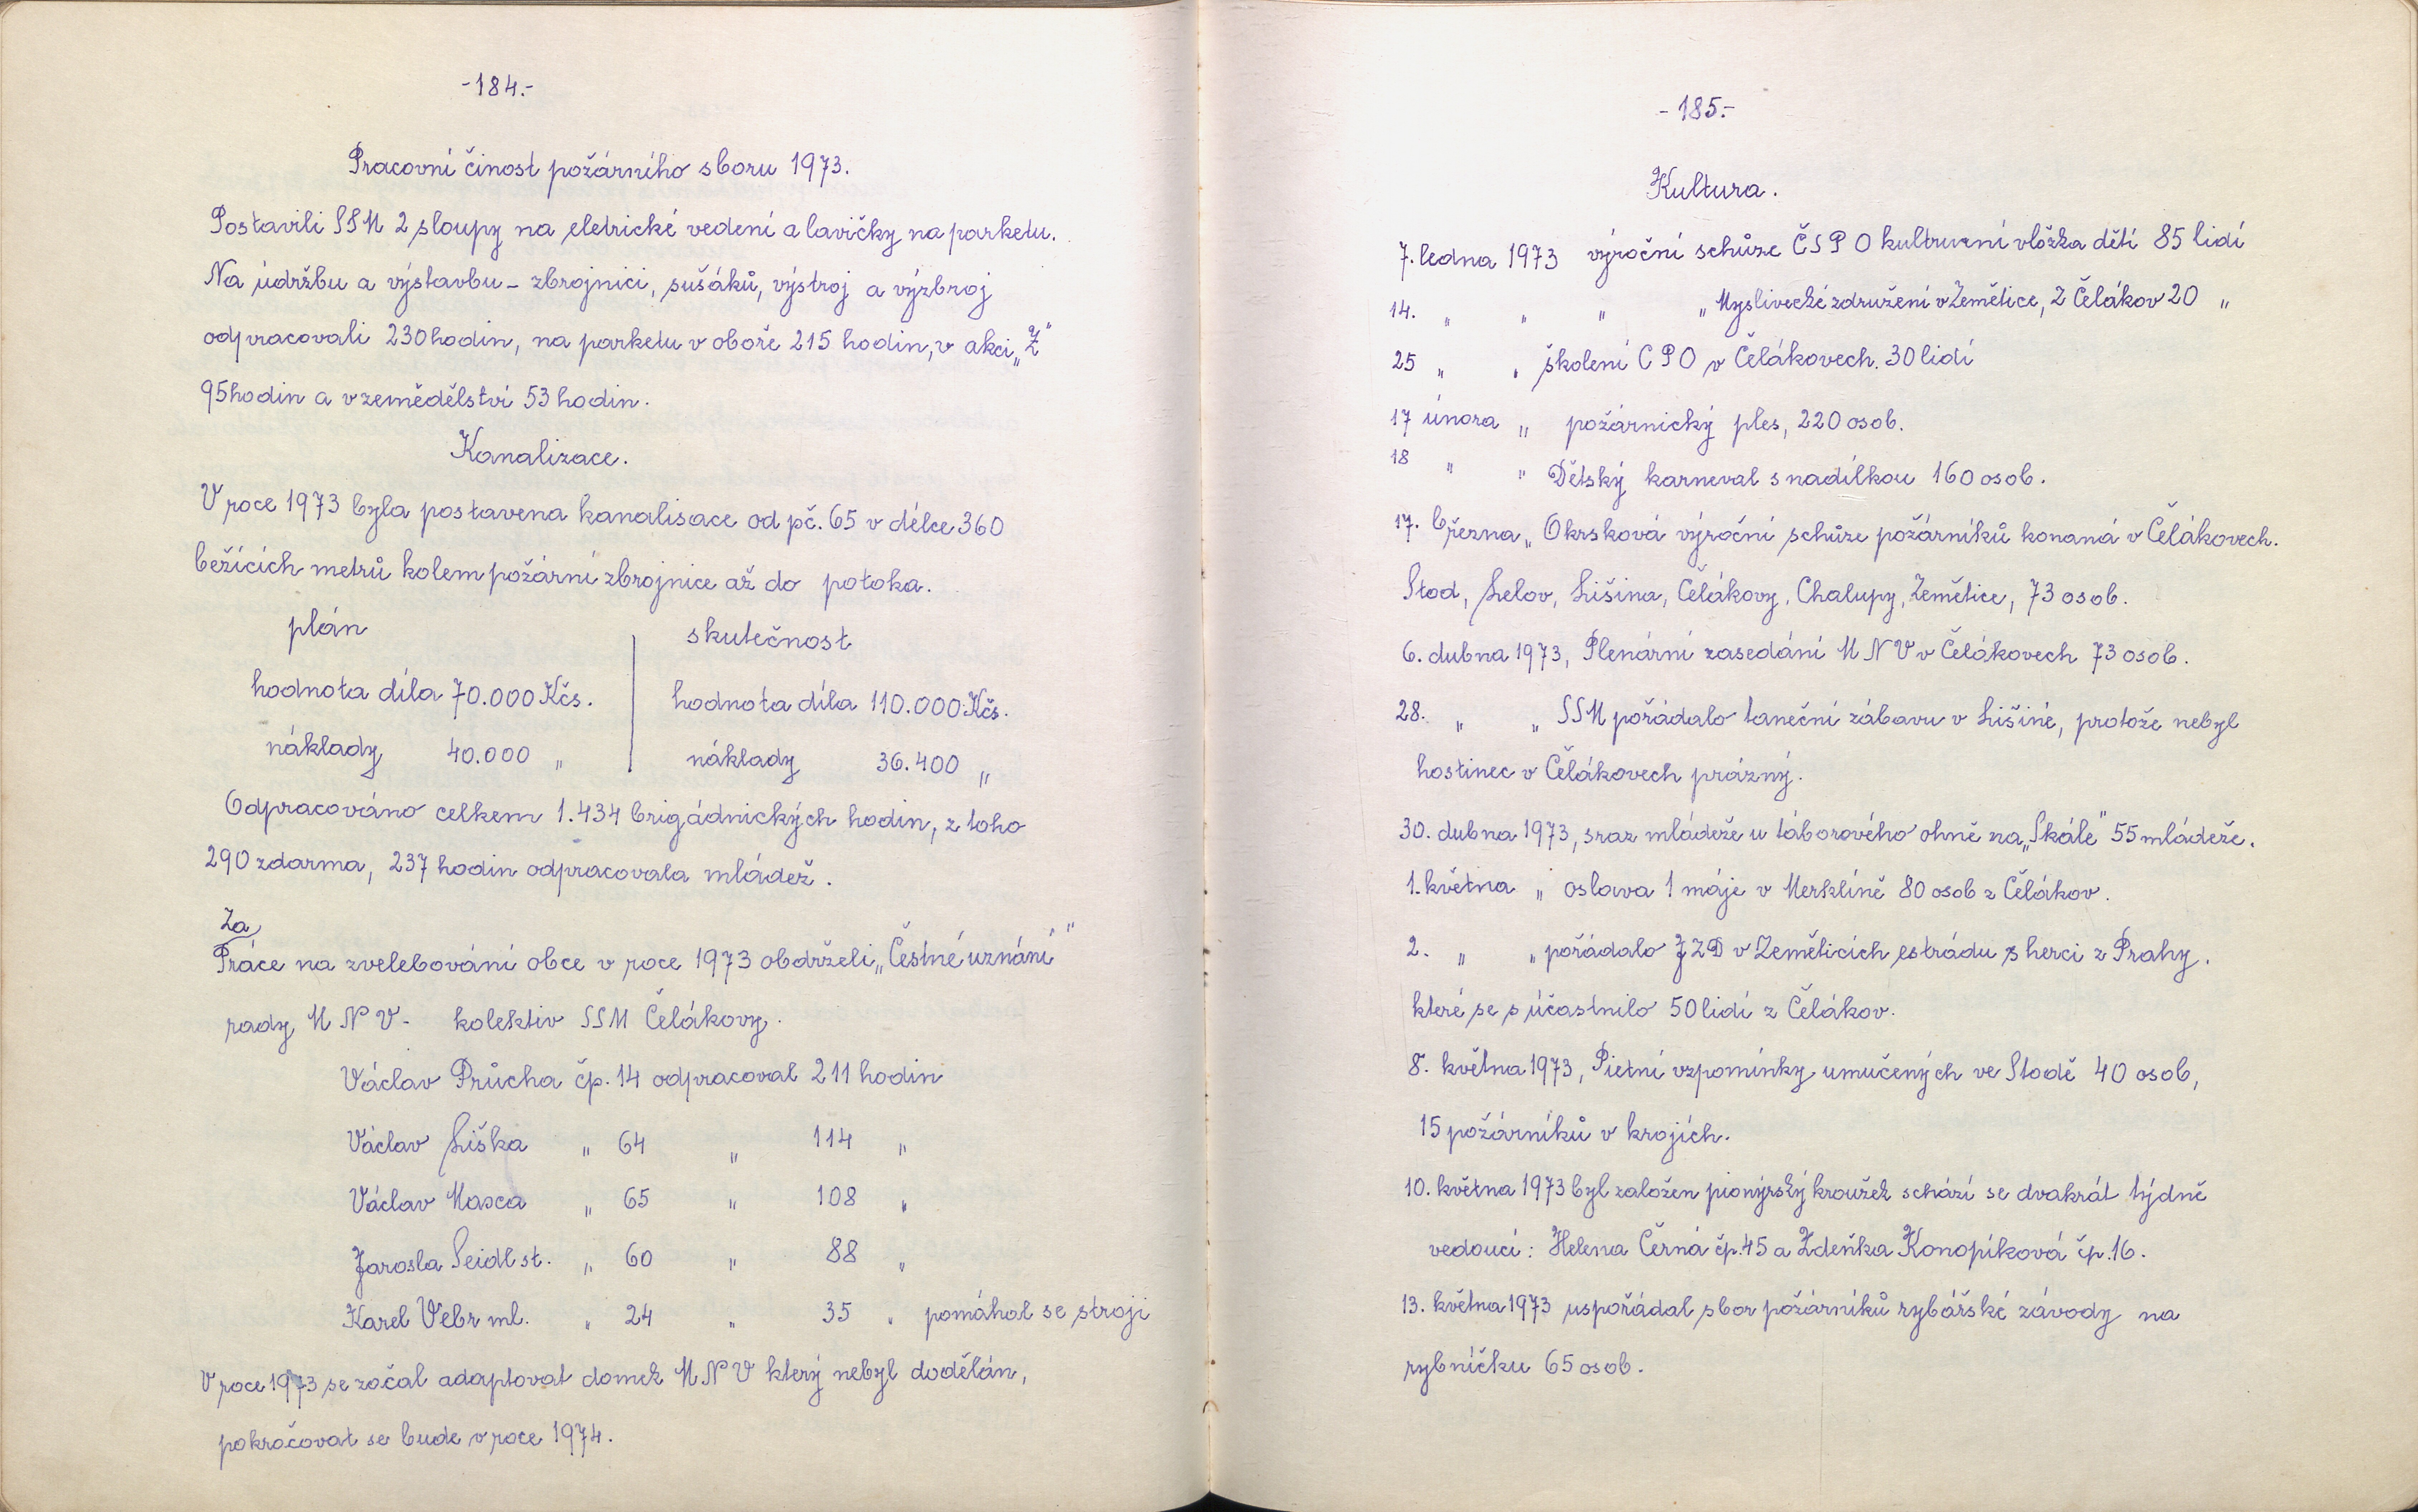 -184.-
Pracovní činost požárního sboru 1973.
Postavili SSM 2 sloupy na eletrické vedení a lavičky na parketu.
Na údržbu a výstavbu - zbrojnici, sušáků, výstroj a výzbroj
odpracovali 230 hodin, na parketu v oboře 215 hodin, v akci „Z"
95 hodin a v zemědělství 53 hodin.
Kanalizace.
V roce 1973 byla postavena kanalisace od pč. 65 v délce 360
bežících metrů kolem požární zbrojnice až do potoka.
plán skutečnost
hodnota díla 70.000 Kčs. hodnota díla 110.000 Kčs.
náklady 40.000 „ náklady 36.400 „
Odpracováno celkem 1.434 brigádnických hodin, z toho
290 zdarma, 237 hodin odpracovala mládež.
Za
Práce na zvelebování obce v roce 1973 obdrželi „Čestné uznání"
rady M N V - kolektiv SSM Čelákovy.
Václav Průcha čp. 14 odpracoval 211 hodin
Václav Liška „ 64 „ 114 „
Václav Masca „ 65 „ 108 „
Jarosla Seidl st. „ 60 „ 88 „
Karel Vebr ml. „ 24 „ 35 „ pomáhal se stroji
V roce 1973 se začal adaptovat domek M N V který nebyl dodělán,
pokračovat se bude v roce 1974.
-185.-
Kultura.
7. ledna 1973 výroční schůze Č S P O kultruzní vložka dětí 85 lidí
14. „ „ „ „ Myslivecké združení v Zemětice, Z Čelákov 20 „
25 „ „ školení C P O v Čelákovech. 30 lidí
17 února „ požárnický ples, 220 osob.
18 „ „ Dětský karneval s nadílkou 160 osob.
17. března „ Okrsková výroční schůze požárníků konaná v Čelákovech.
Stod, Lelov, Lišina, Čelákovy, Chalupy, Zemětice, 73 osob.
6. dubna 1973, Plenární zasedání M N V v Čelákovech 73 osob.
28. „ „ SSM pořádalo taneční zábavu v Lišině, protože nebyl
hostinec v Čelákovech prázný.
30. dubna 1973, sraz mládeže u táborového ohně na „Skále" 55 mládeže.
1. května „ oslava 1 máje v Merklíně 80 osob z Čelákov.
2. „ „ pořádalo JZD v Zeměticích estrádu s herci z Prahy.
které se súčastnilo 50 lidí z Čelákov.
8. května 1973, Pietní vzpomínky umučených ve Stodě 40 osob,
15 požárníků v krojích.
10. května 1973 byl založen pionýrský kroužek schází se dvakrát týdně
vedoucí: Helena Černá čp. 45 a Zdeňka Konopíková čp. 16.
13. května 1973 uspořádal sbor požárníků rybářské závody na
rybníčku 65 osob.